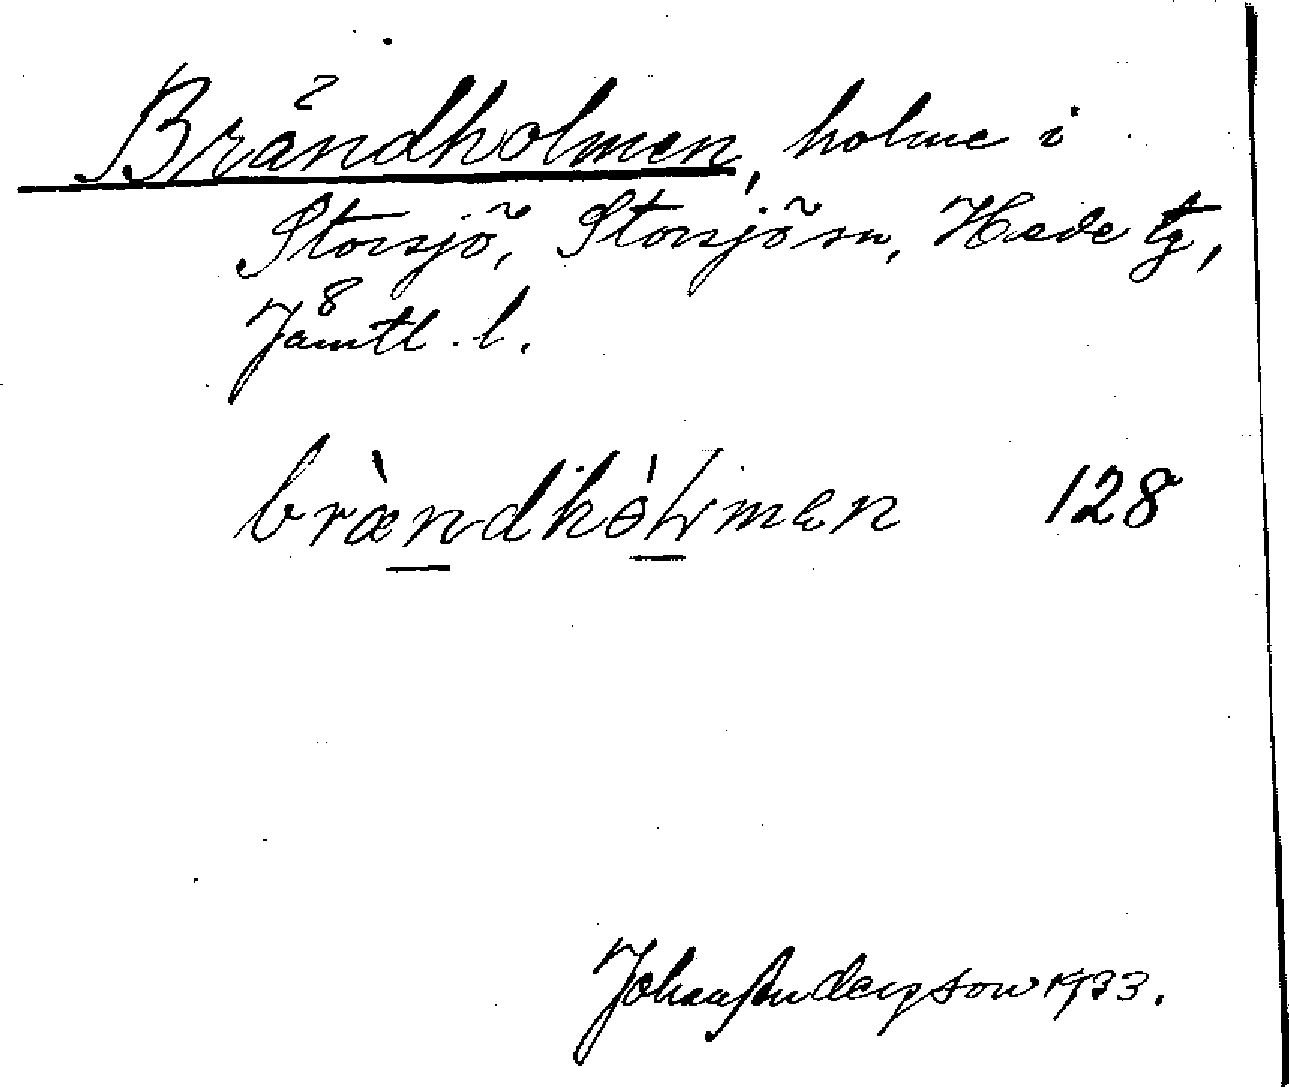 Brändholmen, holme i
Storsjö, Storsjö sn, Hede tg,
Jämtl. l.
bræ̀ndhól̵men 128
Johan Anderson 1933.